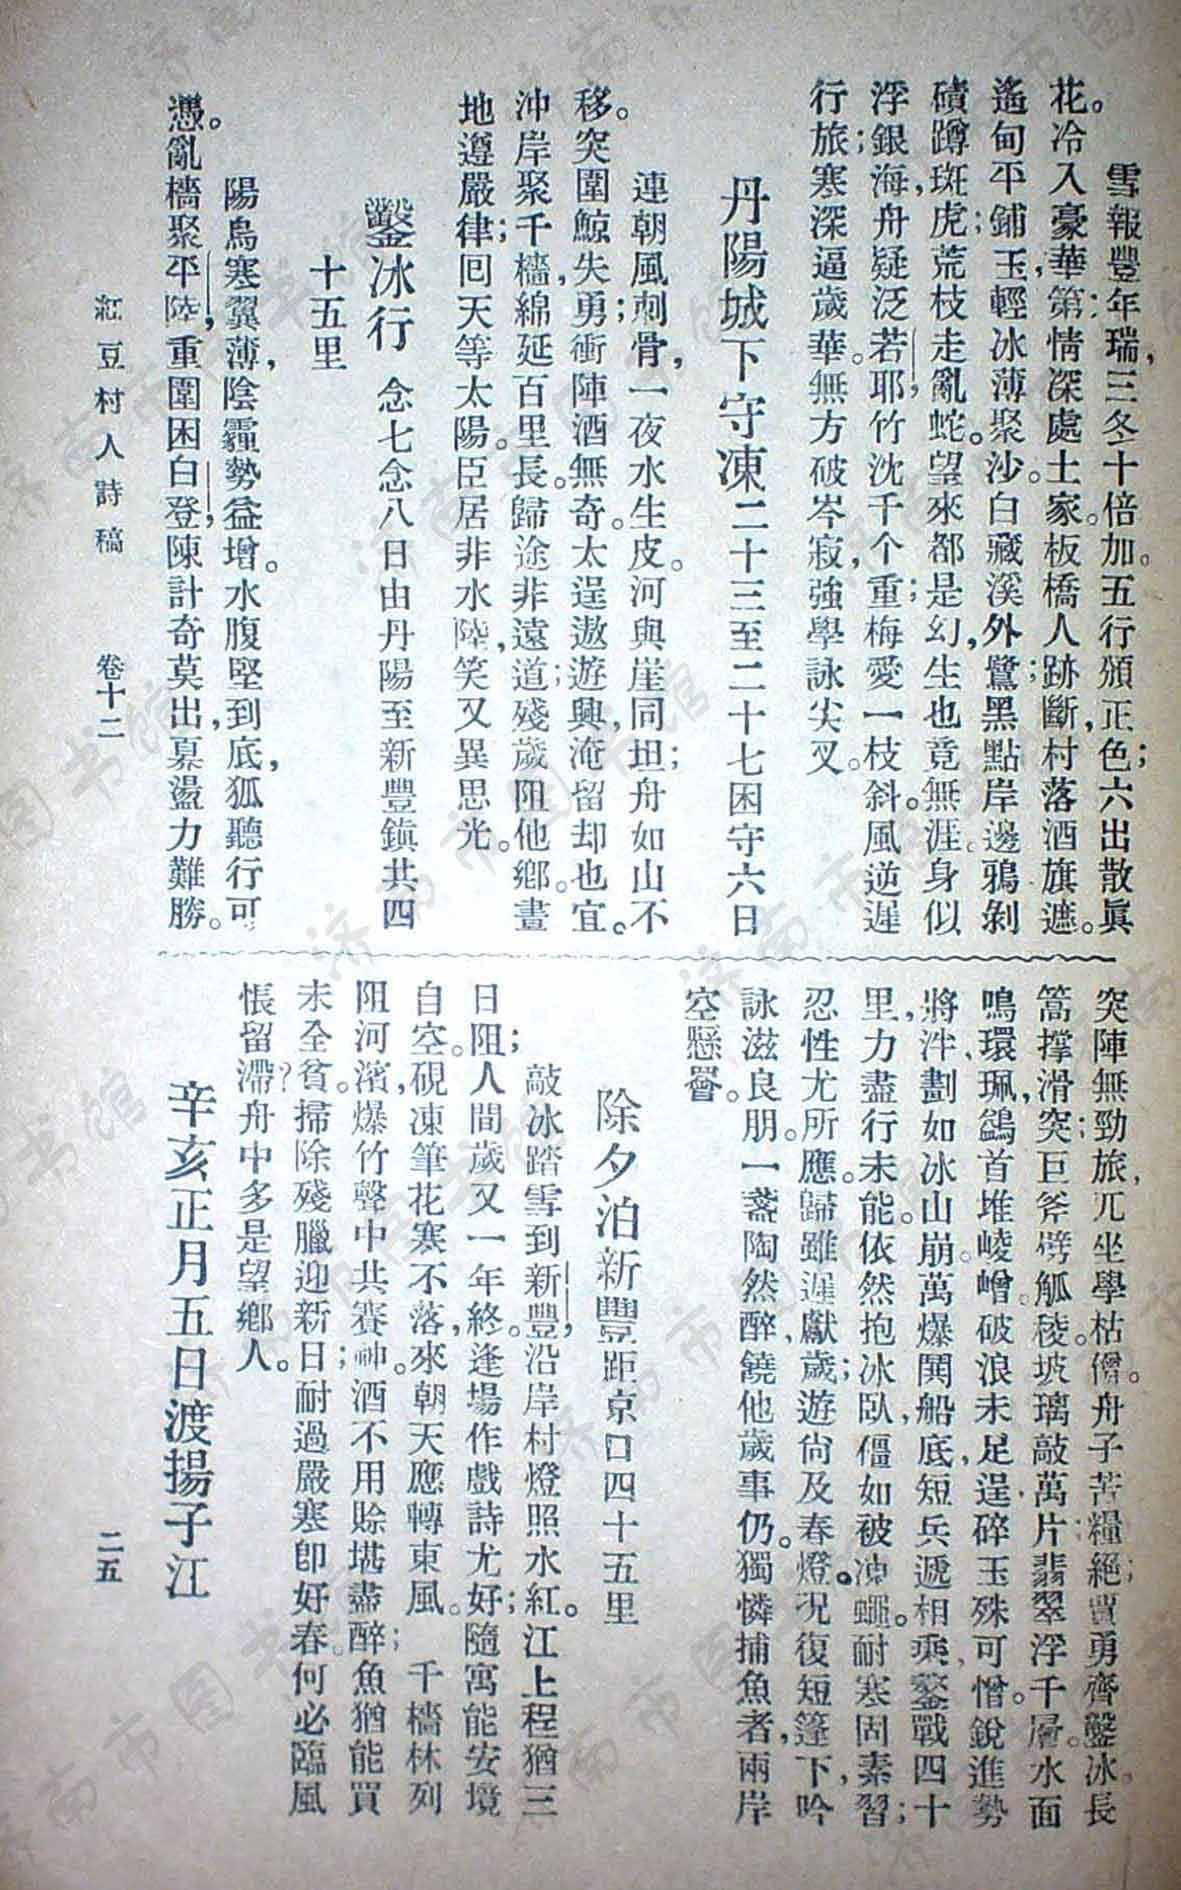 雪報豐年瑞,三冬十倍加。五行頒正色;六出散眞
花。冷入豪華第;情深處士家。板橋人跡斷,村落酒旗遮。
遙甸平鋪玉;輕冰薄聚沙。白藏溪外鷺;黑點岸邊鴉。剝
磧蹲斑虎;荒枝走亂蛇。望來都是幻,生也竟無涯。身似
浮銀海,舟疑泛若耶。竹沈千个重;梅愛一枝斜。風逆遲
行旅;寒深逼歲華。無方破岑寂,強學詠尖叉。
丹陽城下守凍二十三至二十七困守六日
連朝風刺骨,一夜水生皮。河與崖同坦;舟如山不
移。突圍鯨失勇;衝陣酒無奇。太逞遨遊興,淹留却也宜。
沖岸聚千檣,綿延百里長。歸途非遠道;殘歲阻他鄉。畫
地遵嚴律;回天等太陽。臣居非水陸,笑又異思光。
鑿冰行 念七念八日由丹陽至新豐鎮共四
十五里
陽烏寒翼薄,陰霾勢益增。水腹堅到底,狐聽行可
憑。亂檣聚平陸,重圍困白登。陳計奇莫出,奡盪力難勝。
突陣無勁旅,兀坐學枯僧。舟子苦糧絕;賈勇齊鑿冰。長
篙撐滑突;巨斧劈觚稜。玻璃敲萬片;翡翠浮千層。水面
鳴環珮,鷁首堆崚嶒。破浪未足逞,碎玉殊可憎。銳進勢
將泮,劃如冰山崩。萬爆鬨船底,短兵遞相乘。鏖戰四十
里,力盡行未能。依然抱冰臥,僵如被凍蠅。耐寒固素習;
忍性尤所應。歸雖遲獻歲;遊尙及春燈。况復短篷下,吟
詠滋良朋。一盞陶然醉,饒他歲事仍。獨憐捕魚者,兩岸
空懸罾。
除夕泊新豐距京口四十五里
敲冰踏雪到新豐,沿岸村燈照水紅。江上程猶三
日阻;人間歲又一年終。逢場作戲詩尤好;隨寓能安境
自空。硯凍筆花寒不落,來朝天應轉東風。 千檣林列
阻河濱,爆竹聲中共賽神。酒不用賒堪盡醉;魚猶能買
未全貧。掃除殘臘迎新日;耐過嚴寒卽好春。何必臨風
悵留滯?舟中多是望鄉人。
辛亥正月五日渡揚子江
紅豆村人詩稿 卷十二 二五